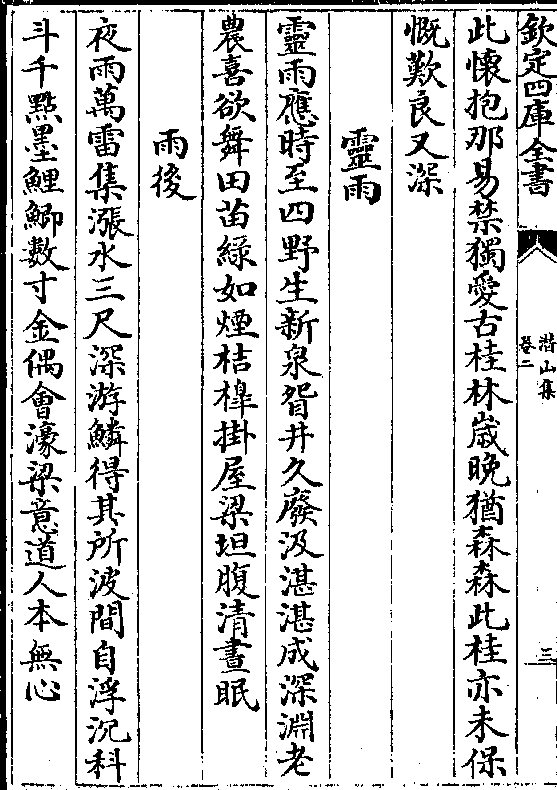 欽定四庫全書
潜山集
卷二
三
此懷抱那易禁獨愛古桂林歲晚猶森森此桂亦未保
慨歎良又深
靈雨
靈雨應時至四野生新泉眢井久廢汲湛湛成深淵老
農喜欲舞田苗綠如煙桔橰掛屋梁坦腹清晝眠
雨後
夜雨萬雷集漲水三尺深游鱗得其所波間自浮沉科
斗千點墨鯉鯽數寸金偶會濠梁意道人本無心